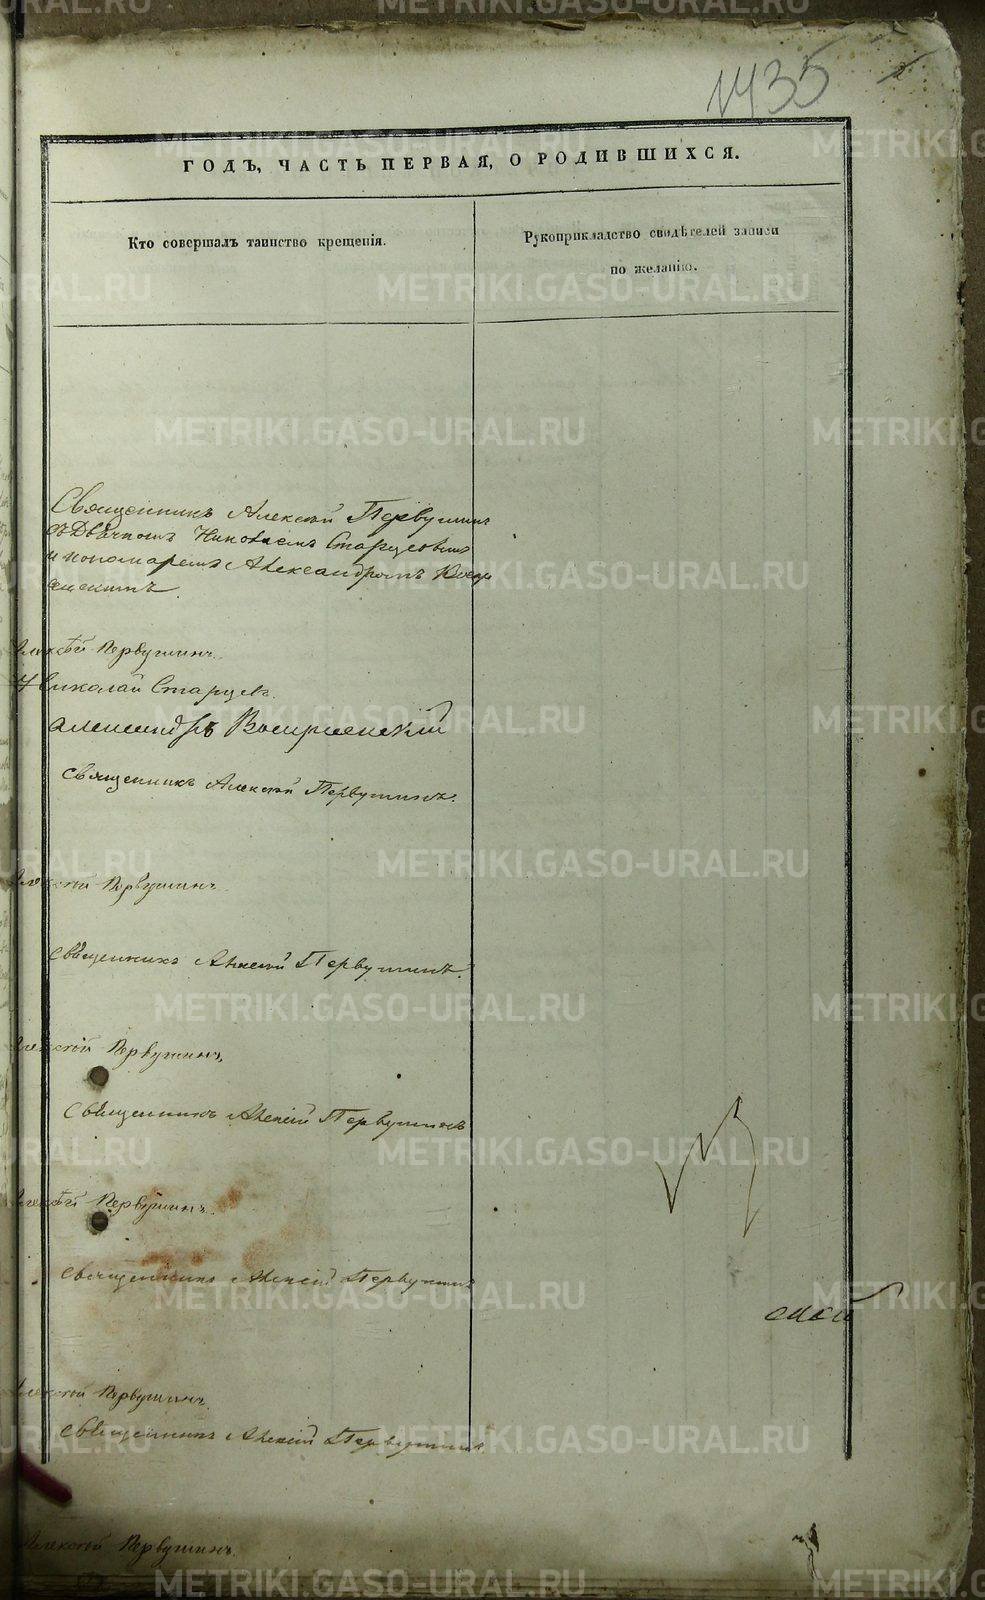 1435
ГОДЪ, ЧАСТЬ ПЕРВАЯ, О РОДИВШИХСЯ.
Кто совершалъ таинство крещенія.
Рукоприкладство свидѣтелей записи
по желанію.
Священникъ Алексѣй Первушинъ
съ Дьячкомъ Николаемъ Старцевымъ
и пономаремъ Александромъ Воскре
сенскимъ.
Алексѣй Первушинъ.
Николай Старцевъ.
Александръ Воскресенскій
Священникъ Алексѣй Первушинъ.
Алексѣй Первушинъ.
Священникъ Алексѣй Первушинъ.
Алексѣй Первушинъ.
Священникъ Алексѣй Первушинъ
Алексѣй Первушинъ.
Священникъ Алексѣй Первушинъ
Алексѣй Первушинъ.
Священникъ Алексѣй Первушинъ.
Алексѣй Первушинъ.
METRIKI.GASO-URAL.RU